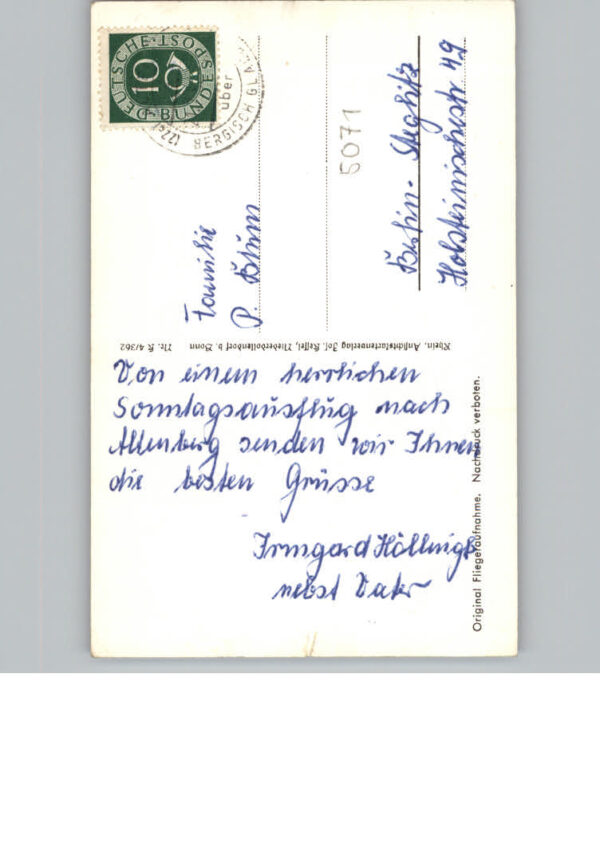 DEUTSCHE BUNDESPOST
10
(22c)
über
BERGISCH GLA
5071
Familie
P. Blum
Berlin-Steglitz
Holsteinischestr 49
Rhein. Ansichtskartenverlag Jos. Kessel, Niederdollendorf b. Bonn Nr. K 4/362
Von einem herrlichen
Sonntagsausflug nach
Altenberg senden wir Ihnen
die besten Grüsse
Irmgard
nebst Vater
Original Fliegeraufnahme. Nachdruck verboten.